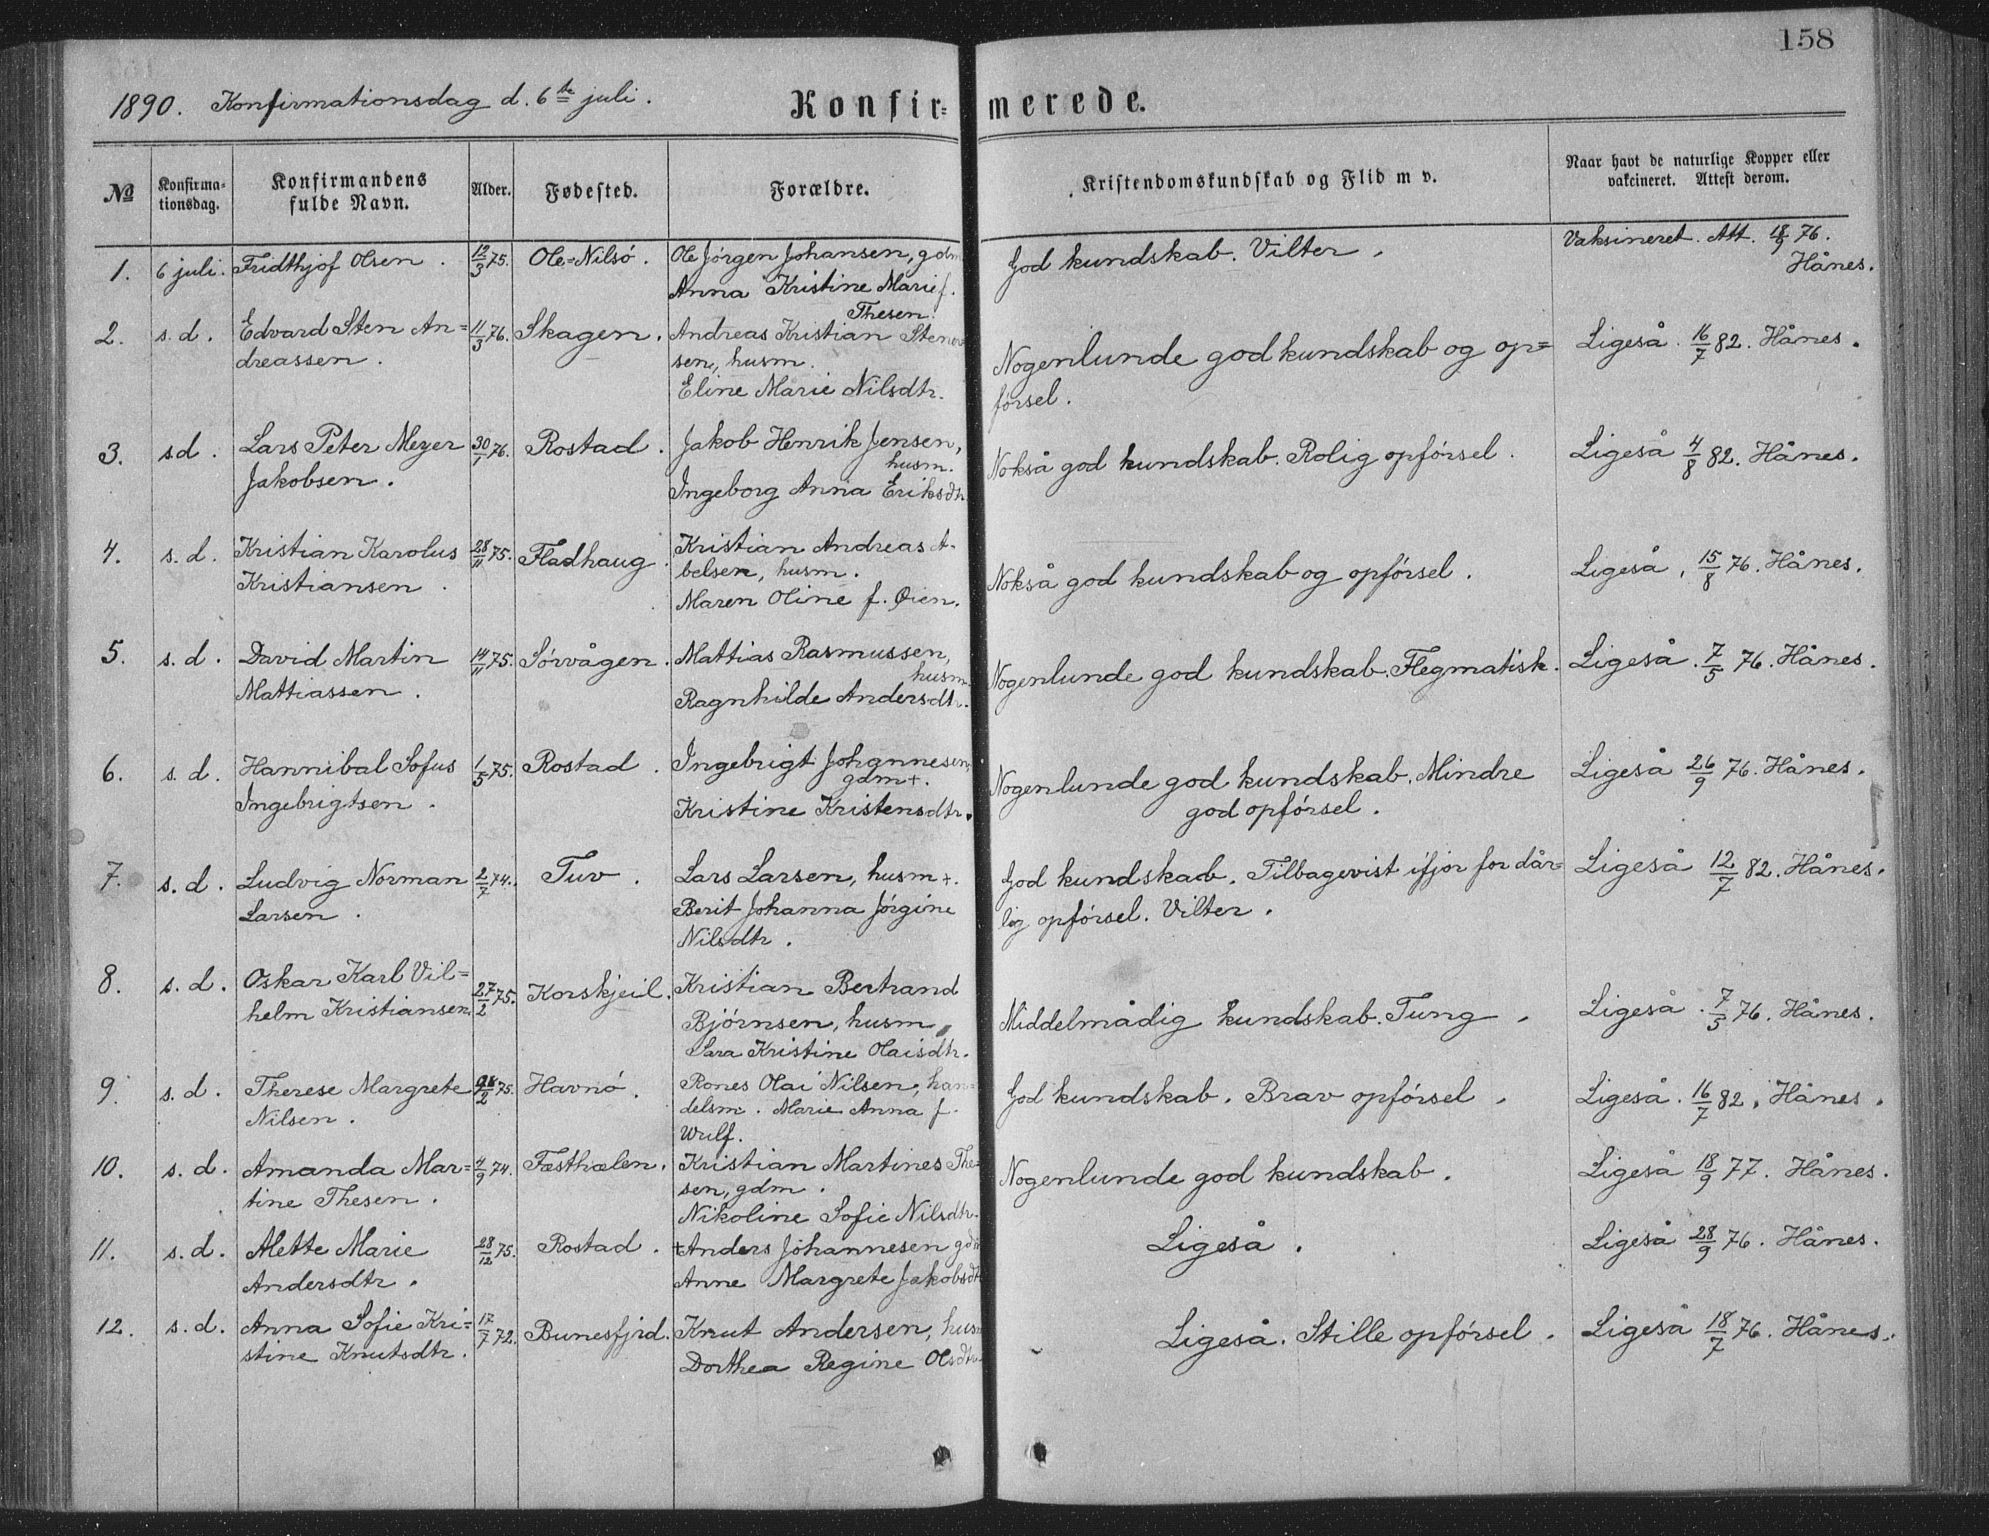 158
1890. Konfirmationsdag d. 6te juli.
Konfir= merede.
No
Konfirma-
tionsdag.
Konfirmandens
fulde Navn.
Alder.
Fødested.
Forældre.
Kristendomskundskab og Flid m v.
Naar havt de naturlige Kopper eller
vakcineret. Attest derom.
1. 6 juli. Fridthjof Olsen. 12/3 75. Ole=Nilsö. Ole Jörgen Johansen, gdm God kundskab. Vilter. Vaksineret. Att. 76.
Anna Kristine Marie f. Hånes.
Thesen.
2. s. d. Edvard Sten An= 11/3 76. Skagen. Andreas Kristian Nogenlunde god kundskab og op= Ligeså. 16/7 82. Hånes.
dreassen. sen, husm. försel.
Eline Marie Nilsdtr.
3. s d. Lars Peter Meyer 30/1 76. Rostad. Jakob Henrik Jensen, Nokså god kundskab. Rolig opförsel. Ligeså 4/8 82. Hånes.
Jakobsen. husm.
Ingeborg Anna Eriksdtr
4. s. d. Kristian Karolus 28/11 75. Fladhaug. Kristian Andreas A- Nokså god kundskab og opförsel. Ligeså, 15/8 76. Hånes.
Kristiansen. belsen, husm.
Maren Oline f. Øien.
5. s. d. David Martin 14/11 75. Sörvågen. Mattias Rasmussen, Nogenlunde god kundskab. Flegmatisk. Ligeså. 7/5 76. Hånes.
Mattiassen. husm.
Ragnhilde Andersdtr.
6. s. d. Hannibal Sofus 1/5 75. Rostad. Ingebrigt Johannesen, Nogenlunde god kundskab. Mindre Ligeså 26/9 76. Hånes.
Ingebrigtsen. gdm +. god opförsel.
Kristine Kristensdtr.
7. s. d. Ludvig Norman 2/7 74. Tuv. Lars Larsen, husm +. God kundskab. Tilbagevist ifjor for dår= Ligeså 12/7 82. Hånes.
Larsen. Berit Johanna Jörgine lig opförsel. Vilter.
Nilsdtr.
8. s. d. Oskar Karl Vil= 27/2 75. Korskjeil. Kristian Bertrand Middelmådig kundskab. Tung. Ligeså. 7/5 76. Hånes.
helm Kristiansen. Björnsen, husm,
Sara Kristine Olaisdtr.
9. s. d. Therese Margrete 75. Havnö. Rones Olai Nilsen, han= God kundskab. Brav opförsel. Ligeså. 16/7 82. Hånes.
Nilsen. delsm. Marie Anna f.
Wulf.
10. s. d. Amanda Mar= 4/9 74. Fæsthælen. Kristian Martines The= Nogenlunde god kundskab. Ligeså 18/9 77. Hånes.
tine Thesen. sen, gdm.
Nikoline Sofie Nilsdtr.
11. s. d. Alette Marie 28/12 75. Rostad. +Anders Johannesen gdm Ligeså. Ligeså 28/9 76. Hånes.
Andersdtr. Anne Margrete Jakobsdtr
12. s. d. Anna Sofie Kri= 17/7 72. Bunesfjrd. Knut Andersen, husm Ligeså. Stille opförsel. Ligeså 18/7 76. Hånes.
stine Knutsdtr. Dorthea Regine Olsdtr.